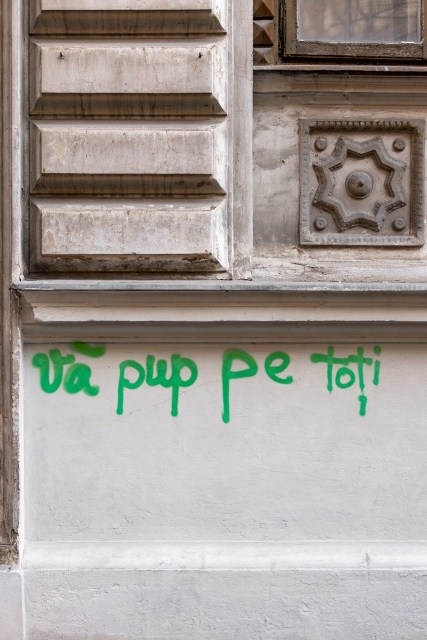 Vă pup pe toți